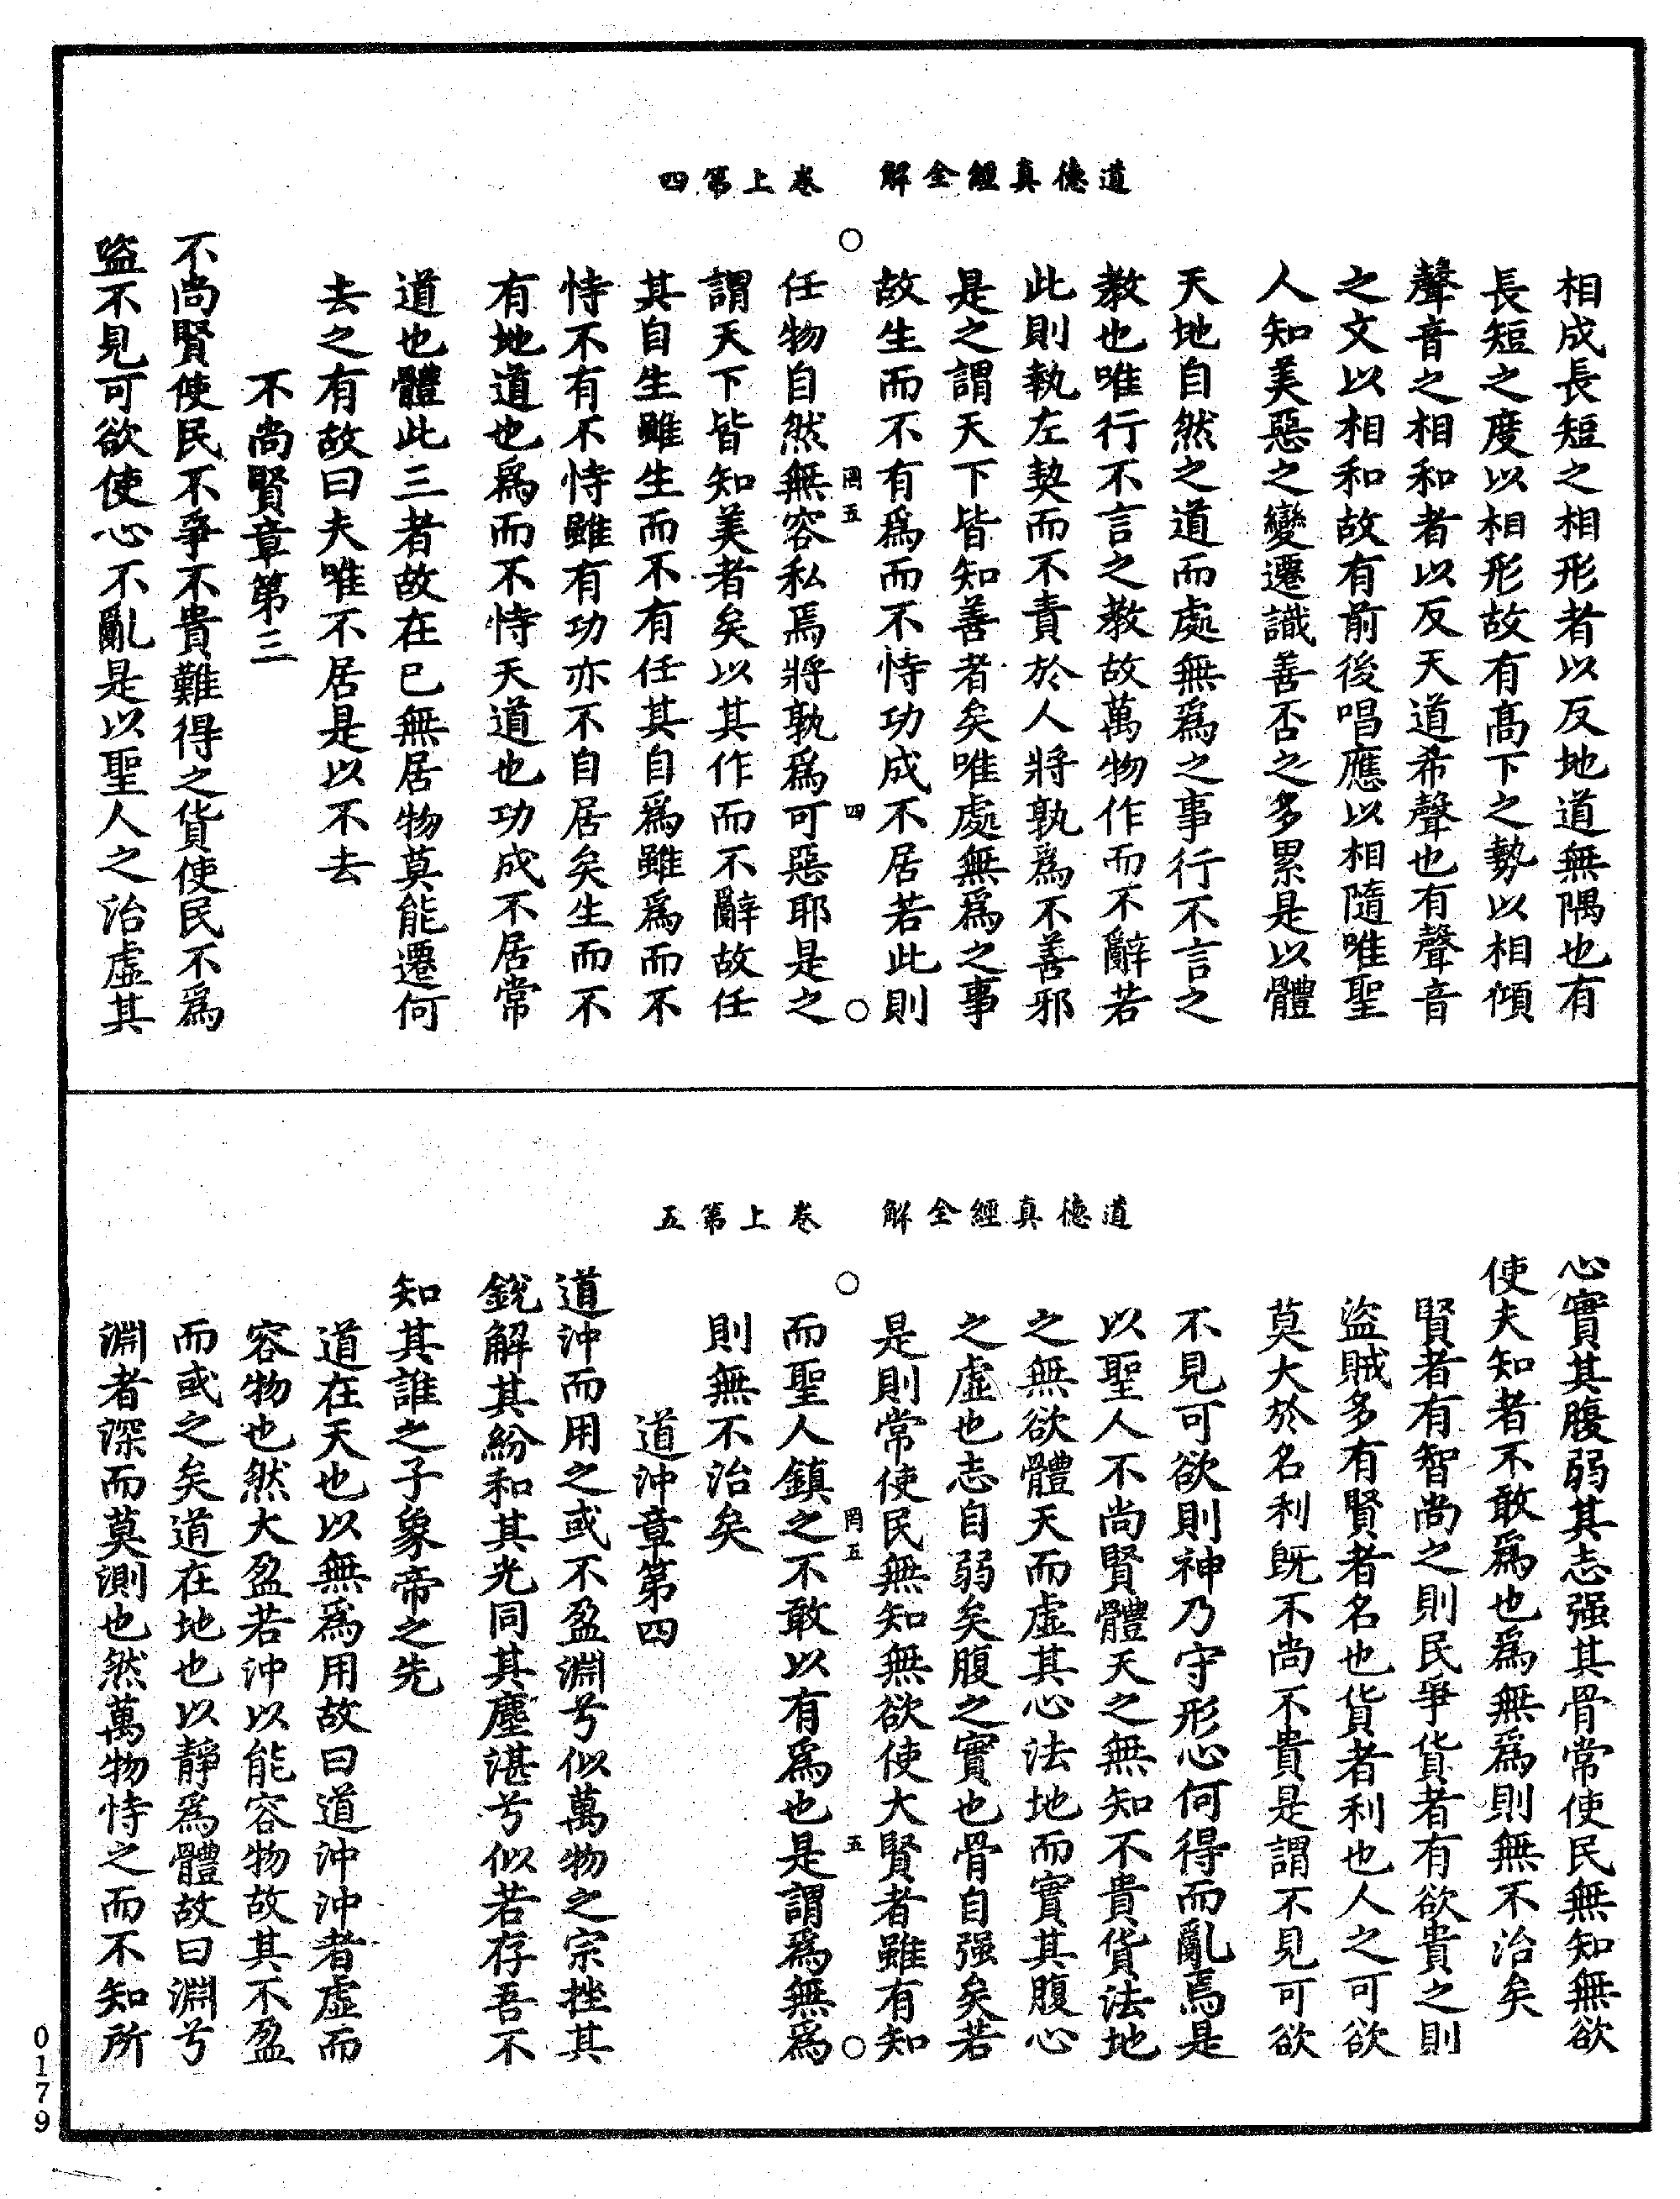 道德真經全解　卷上第四
相成長短之相形者以反地道無隅也有
長短之度以相形故有高下之勢以相傾
聲音之相和者以反天道希聲也有聲音
之文以相和故有前後唱應以相隨唯聖
人知美惡之變遷識善否之多累是以體
天地自然之道而處無爲之事行不言之
教也唯行不言之教故萬物作而不辭若
此則執左契而不責於人將孰爲不善邪
是之謂天下皆知善者矣唯處無爲之事
故生而不有爲而不恃功成不居若此則
○　罔五　四　○
任物自然無容私焉將孰爲可惡耶是之
謂天下皆知美者矣以其作而不辭故任
其自生雖生而不有任其自爲雖爲而不
恃不有不恃雖有功亦不自居矣生而不
有地道也爲而不恃天道也功成不居常
道也體此三者故在已無居物莫能遷何
去之有故曰夫唯不居是以不去
不尚賢章第三
不尚賢使民不爭不貴難得之貨使民不爲
盜不見可欲使心不亂是以聖人之治虛其
道德真經全解　卷上第五
心實其腹弱其志强其骨常使民無知無欲
使夫知者不敢爲也爲無爲則無不治矣
賢者有智尚之則民爭貨者有欲貴之則
盜賊多有賢者名也貨者利也人之可欲
莫大於名利旣不尚不貴是謂不見可欲
不見可欲則神乃守形心何得而亂焉是
以聖人不尚賢體天之無知不貴貨法地
之無欲體天而虛其心法地而實其腹心
之虛也志自弱矣腹之實也骨自强矣若
是則常使民無知無欲使大賢者雖有知
○　罔五　五　○
而聖人鎮之不敢以有爲也是謂爲無爲
則無不治矣
道沖章第四
道沖而用之或不盈淵兮似萬物之宗挫其
銳解其紛和其光同其塵湛兮似若存吾不
知其誰之子象帝之先
道在天也以無爲用故曰道沖沖者虛而
容物也然大盈若沖以能容物故其不盈
而或之矣道在地也以靜爲體故曰淵兮
淵者深而莫測也然萬物恃之而不知所
0179